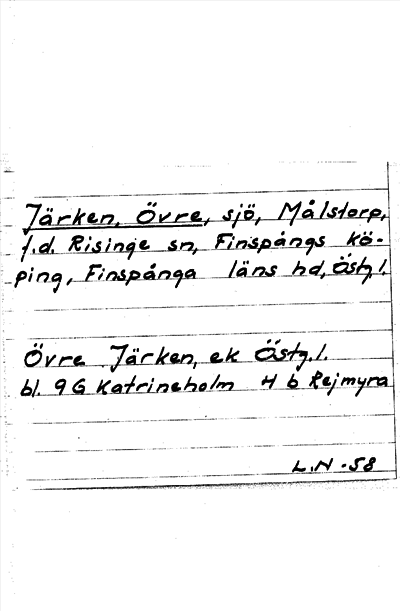 Järken, Övre, sjö, Målstorp,
f.d. Risinge sn, Finspångs kö-
ping, Finspånga läns hd, Östg.l.
Övre Järken, ek Östg.l.
bl. 9G Katrineholm 4 b Rejmyra
L.N -58